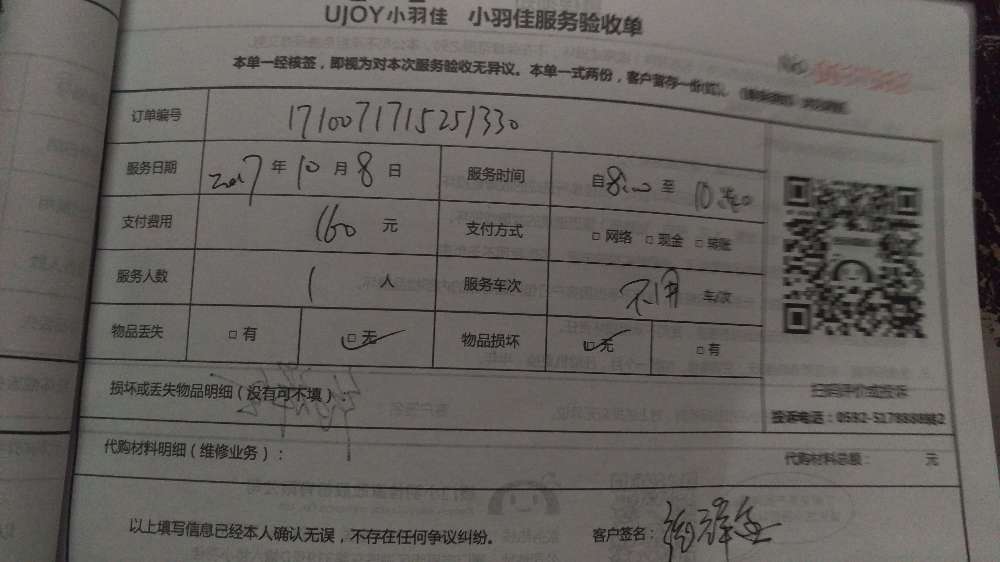 UJOY小羽佳 小羽佳服务验收单
本单一经核签，即视为对本次服务验收无异议。本单一式两份，客户留存一份(红)。
订单编号 1710071715251330
服务日期 2017年10月8日 服务时间 自8:00至10:00
支付费用 160元 支付方式 □网络 □现金 □转账
服务人数 1人 服务车次 不用 车/次
物品丢失 □有 ☑无 物品损坏 ☑无 □有
损坏或丢失物品明细（没有可不填）：
扫码评价或投诉
代购材料明细（维修业务）：
代购材料总额： 元
以上填写信息已经本人确认无误，不存在任何争议纠纷。 客户签名：